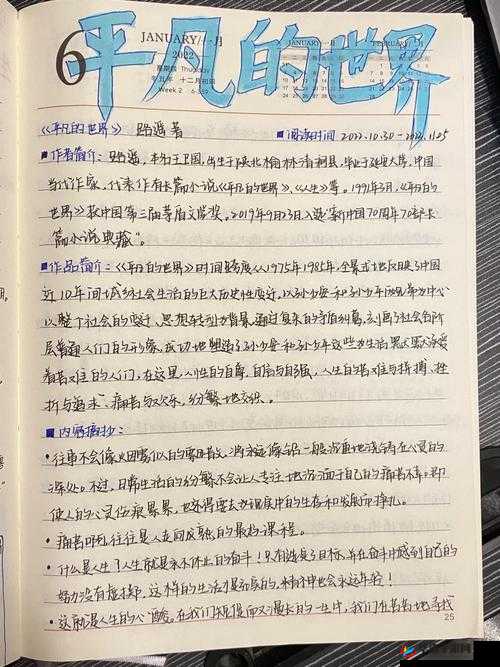 平凡的世界
6
JANUARY/一月
2022
星期四 Thursday
十二月初四
Week 2
《平凡的世界》 路遥著 ■阅读时间 2022.10.30-2022.11.25
■作者简介:路遥,本名王卫国,出生于陕北榆林清涧县,毕业于延安大学,中国
当代作家,代表作有长篇小说《平凡的世界》、《人生》等。1991年3月,《平凡的
世界》获中国第三届茅盾文学奖。2019年9月23日入选“新中国70周年70部长
篇小说典藏”。
■作品简介:《平凡的世界》时间跨度从1975年1985年,全景式地反映了中国
近10年间城乡社会生活的巨大历史性变迁,以孙少安和孙少平两兄弟为中心
以整个社会的变迁、思想转型为背景,通过复杂的矛盾纠葛,刻画了社会各阶
层普通人们的形象,成功地塑造了孙少安和孙少平这些为生活默默承受
着苦难的人们,在这里,人性的自尊、自信与自强,人生的苦难与拼搏,挫
折与追求,痛苦与欢乐,纷繁地交织。
■内容摘抄:
·往事不会像烟雾似的飘散,将永远像铅一般沉重地浇铸在心灵的
深处。不过,日常生活的纷繁不会让人专注地沉湎于自己的痛苦不幸。即
使人的心灵伤痕累累,也还得要去为现实中的生存和发展而挣扎。
·痛苦难道往往是人走向成熟的最好课程。
·什么是人生?人生就是永不休止的奋斗!只有选定了目标并在奋斗中感到自己的
努力没有虚掷,这样的生活才是充实的,精神也会永远年轻!
·这就是人生的心酸,在我们短促而又漫长的一生中,我们在苦苦地寻找
25